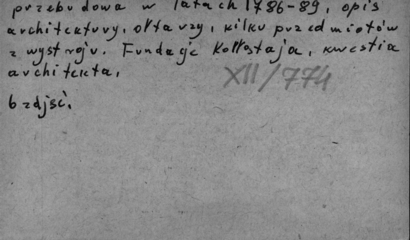 przebudowa w latach 1786-89, opis
architektury, ołtarzy, kilku przedmiotów
z wystroju. Fundacje Kołłątaja, kwestia
architekta.
XII/774
6 zdjęć.